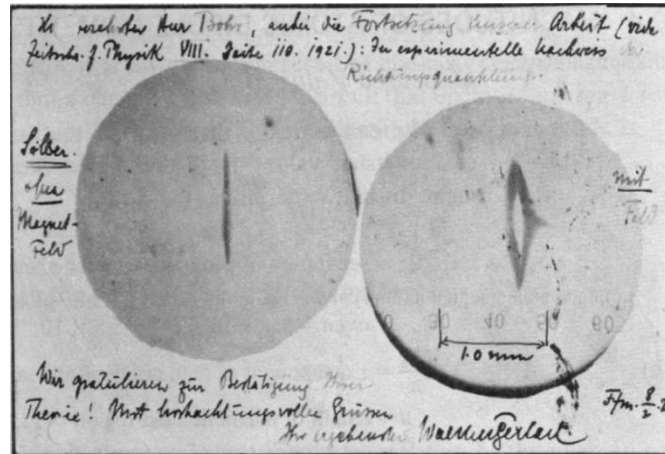 verehrter Herr Bohr, anbei die Fortsetzung unserer Arbeit (vide
Zeitschr. f. Physik VIII. Seite 110. 1921.): Der experimentelle Nachweis der
Richtungsquantelung.
Silber
ohne
Magnet-
Feld
mit
Feld
30 40 50 60
1.0 mm
Wir gratulieren zur Bestätigung Ihrer
Theorie! Mit hochachtungsvollen Grüssen
Ihr ergebenster Walther Gerlach
Ffm. 8/2.